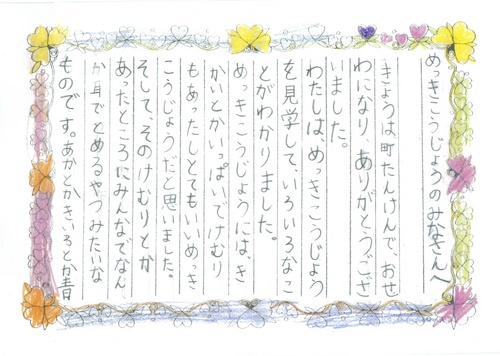 めっきこうじょうのみなさんへ
きょうは、町たんけんで、おせ
わになり、ありがとうござ
いました。
わたしは、めっきこうじょう
を見学して、いろいろなこ
とがわかりました。
めっきこうじょうには、き
かいとかいっぱいでけむり
もあったしとてもいいめっき
こうじょうだと思いました。
そして、そのけむりとか
あったところにみんなでなん
か耳でとめるやつみたいな
ものです。あかとかきいろとか青